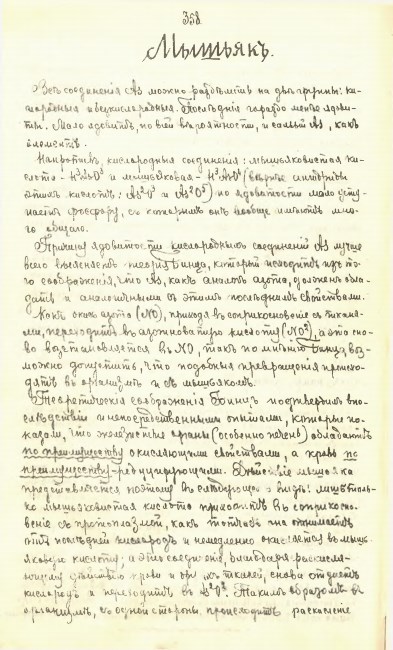 358
Мышьякъ.
Всѣ соединенія As можно раздѣлить на двѣ группы: ки-
слородныя и безкислородныя. Послѣднія гораздо менѣе ядови-
ты. Мало ядовитъ, по всей вѣроятности, и самый As, какъ
элементъ.
Напротивъ, кислородныя соединенія: мышьяковистая ки-
слота и мышьяковая
этихъ кислотъ: по ядовитости мало усту-
паетъ фосфору, съ которымъ онъ вообще имѣютъ мно-
го общаго.
Причину ядовитости кислородныхъ соединеній As лучше
всего выясняетъ теорія Бинца, который исходитъ изъ то-
го соображенія, что As, какъ аналогъ азота, долженъ обла-
дать и аналогичными съ этимъ послѣднимъ свойствами.
Какъ окись азота (NO), приходя въ соприкосновеніе съ тканя-
ми, переходитъ въ кислоту (NO²), а эта сно-
ва возстановляется въ NO, такъ по мнѣнію Бинца, воз-
можно допустить, что подобныя превращенія происхо-
дятъ въ организмѣ и съ мышьякомъ.
Теоретическія соображенія Бинцъ подтвердилъ впо-
слѣдствіи и непосредственными опытами, которые по-
казали, что железистые органы (особенно печень) обладаютъ
по преимуществу окисляющими свойствами, а кровь по
преимуществу - редуцирующими. Дѣйствіе мышьяка
представляется поэтому въ слѣдующемъ видѣ: лишь толь-
ко мышьяковистая кислота приходитъ въ соприкосно-
веніе съ протоплазмой, какъ тотчасъ она отнимаетъ
отъ послѣдней кислородъ и немедленно окисляется въ мышь-
яковую кислоту; а это соединеніе, благодаря раскисля-
ющему дѣйствію крови и тканей, снова отдаетъ
кислородъ и переходитъ въ Такимъ образомъ въ
организмѣ, съ одной стороны, происходитъ раскисленіе